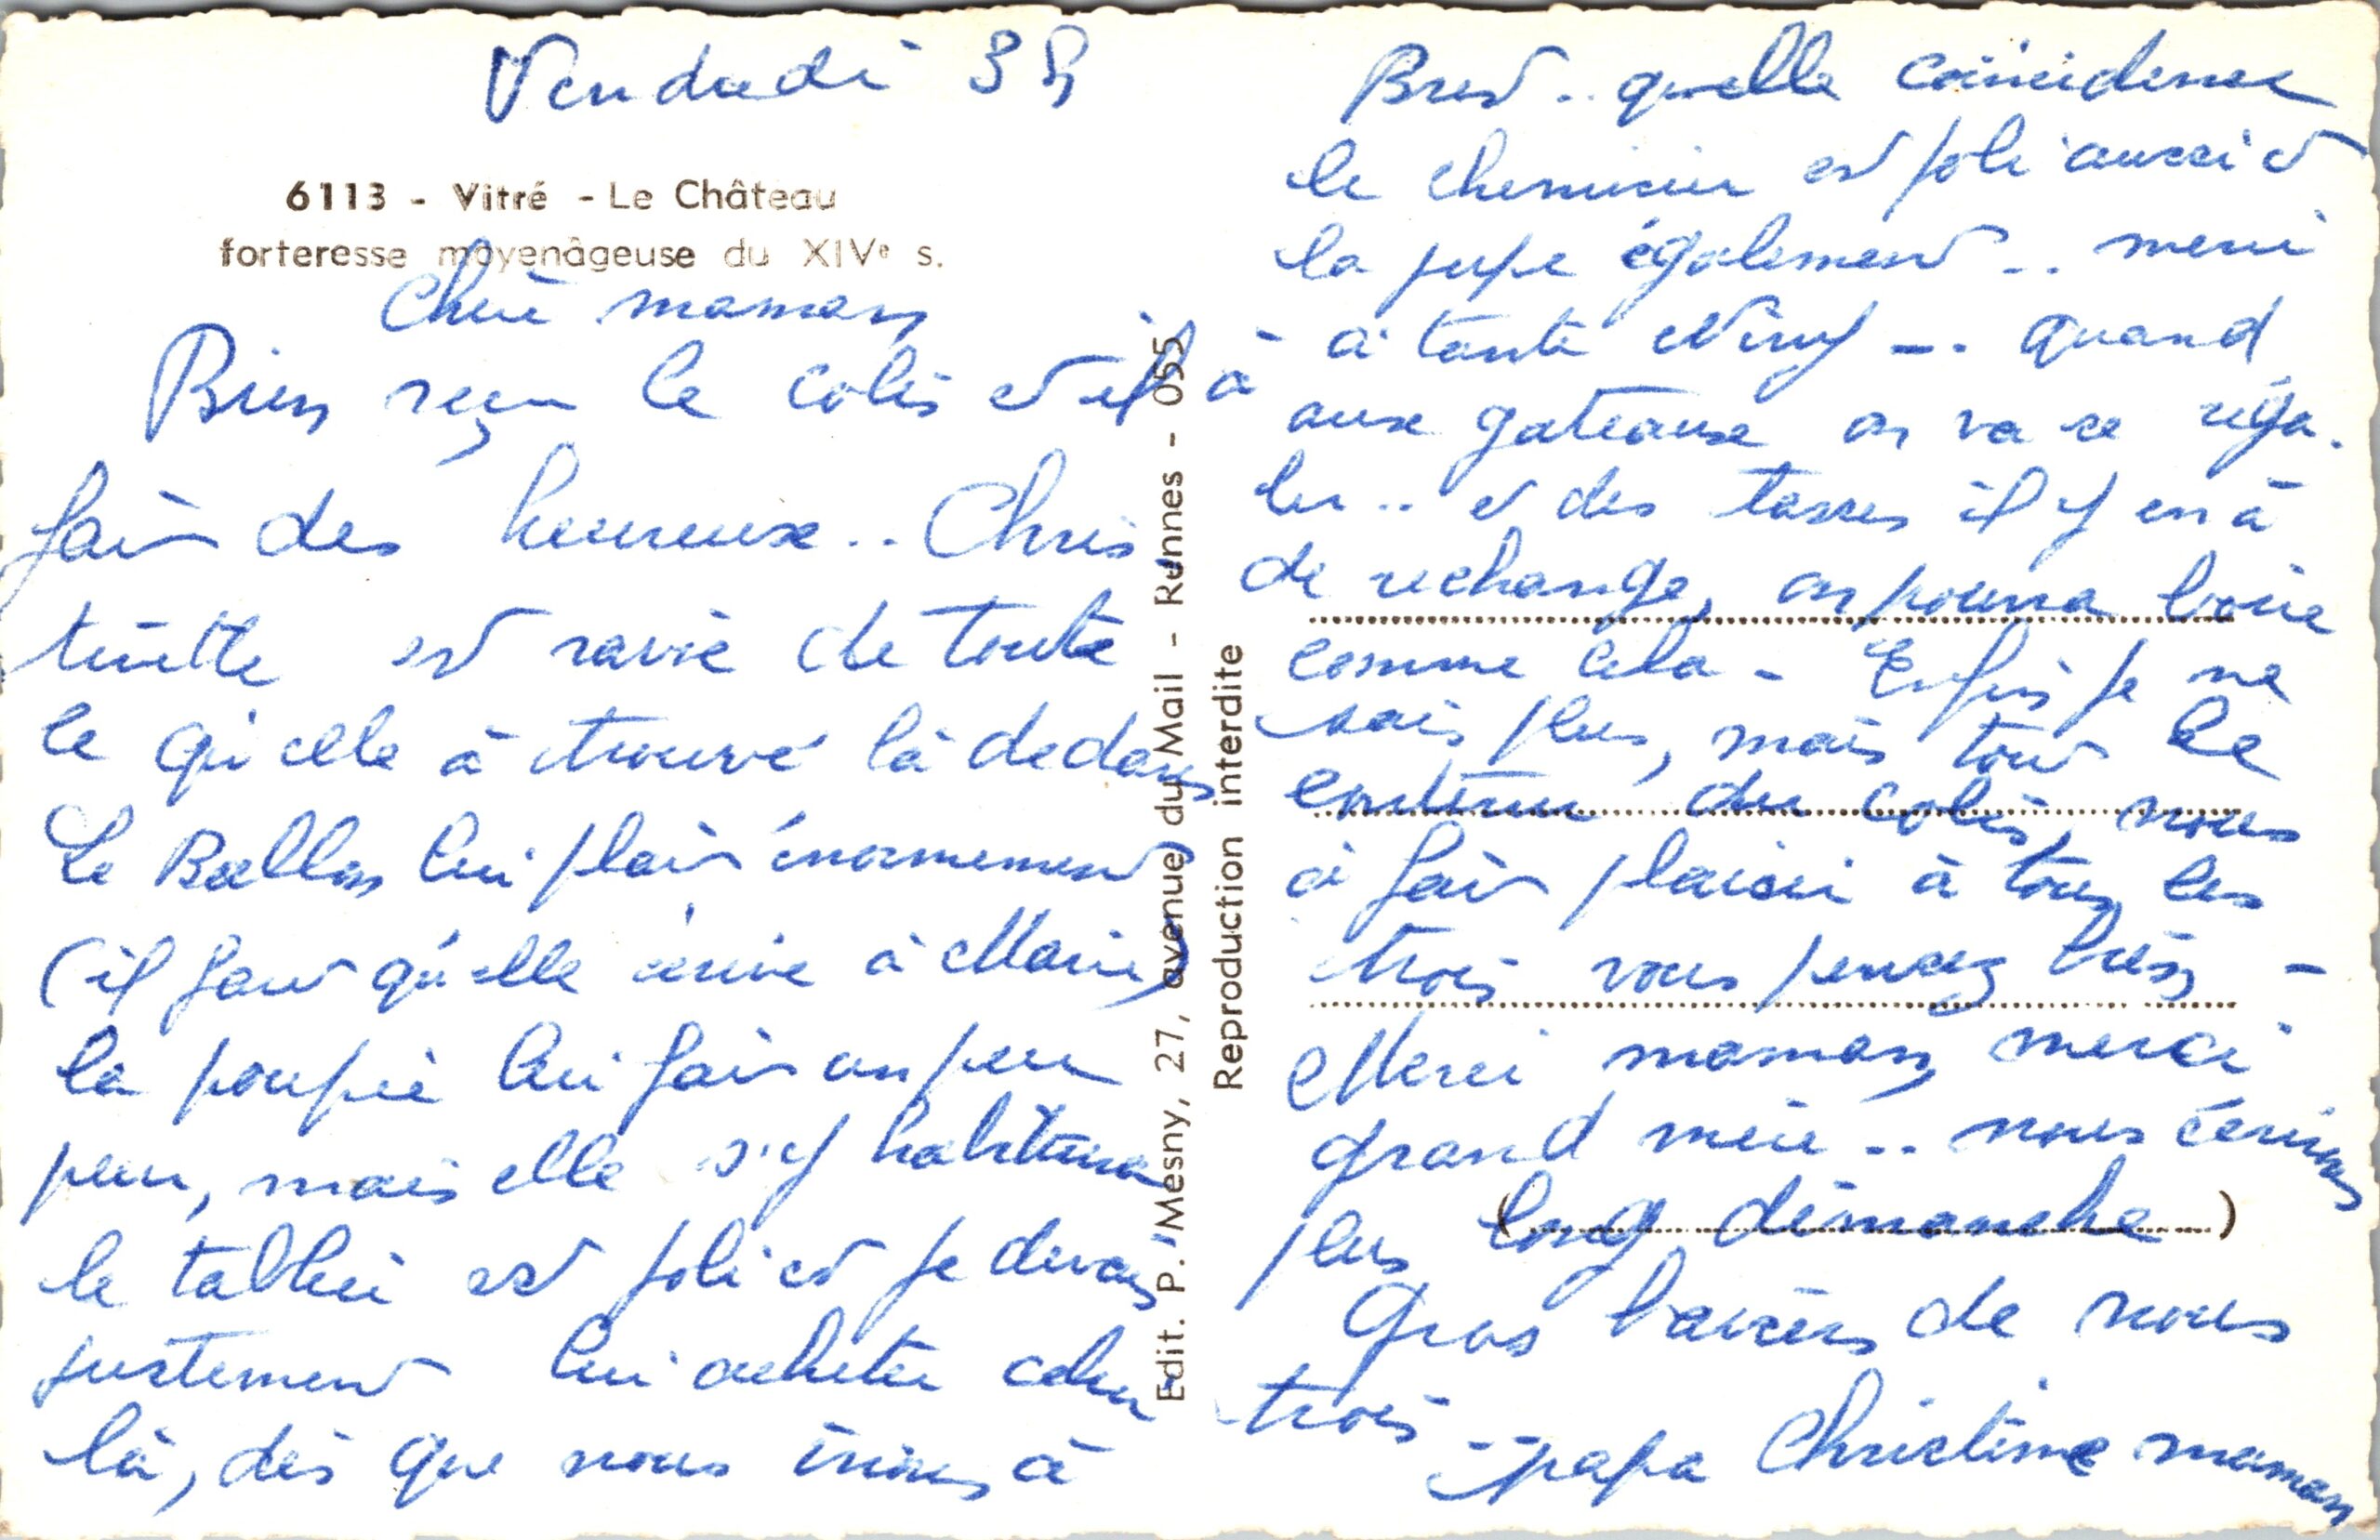 Vendredi 3 h
6113 - Vitré - Le Château
forteresse moyenâgeuse du XIVe s.
Chère maman
Bien reçu le colis et il à
fait des heureux.. Chris
tinette est ravie de toute
ce qu'elle à trouvé là dedans
Le Ballon lui plait énormement
(il faut qu'elle écrive à Marie)
la poupée lui fait un peu
peur, mais elle s'y habituera
le tablier est joli et je devais
justement lui acheter celui
là, dès que nous irions à
Edit. P. Mesny, 27, avenue du Mail - Rennes - 055
Reproduction interdite
Brest .. quelle coïncidence
le chemisier est joli aussi et
la jupe également .. merci
à tante Niny -.. quand
aux gateaux on va se réga-
ler .. et des tasses il y en à
de rechange, on pourra boire
comme cela - Enfin je ne
sais plus, mais tout le
contenu du colis, nous
à fait plaisir à tous les
trois vous pensez bien -
Merci maman, merci
grand mère .. nous écrirons
plus long dimanche
Gros baisers de nous
trois -
papa Christine maman